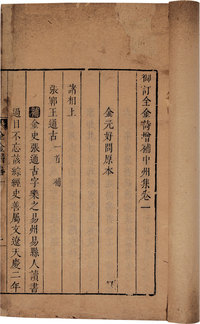 御訂全金詩增補中州集卷一
金元好問原本
諸相上
張郭王通古
補
補金史張通古字樂之易州易縣人讀書
過目不忘該綜經史善屬文遼天慶二年